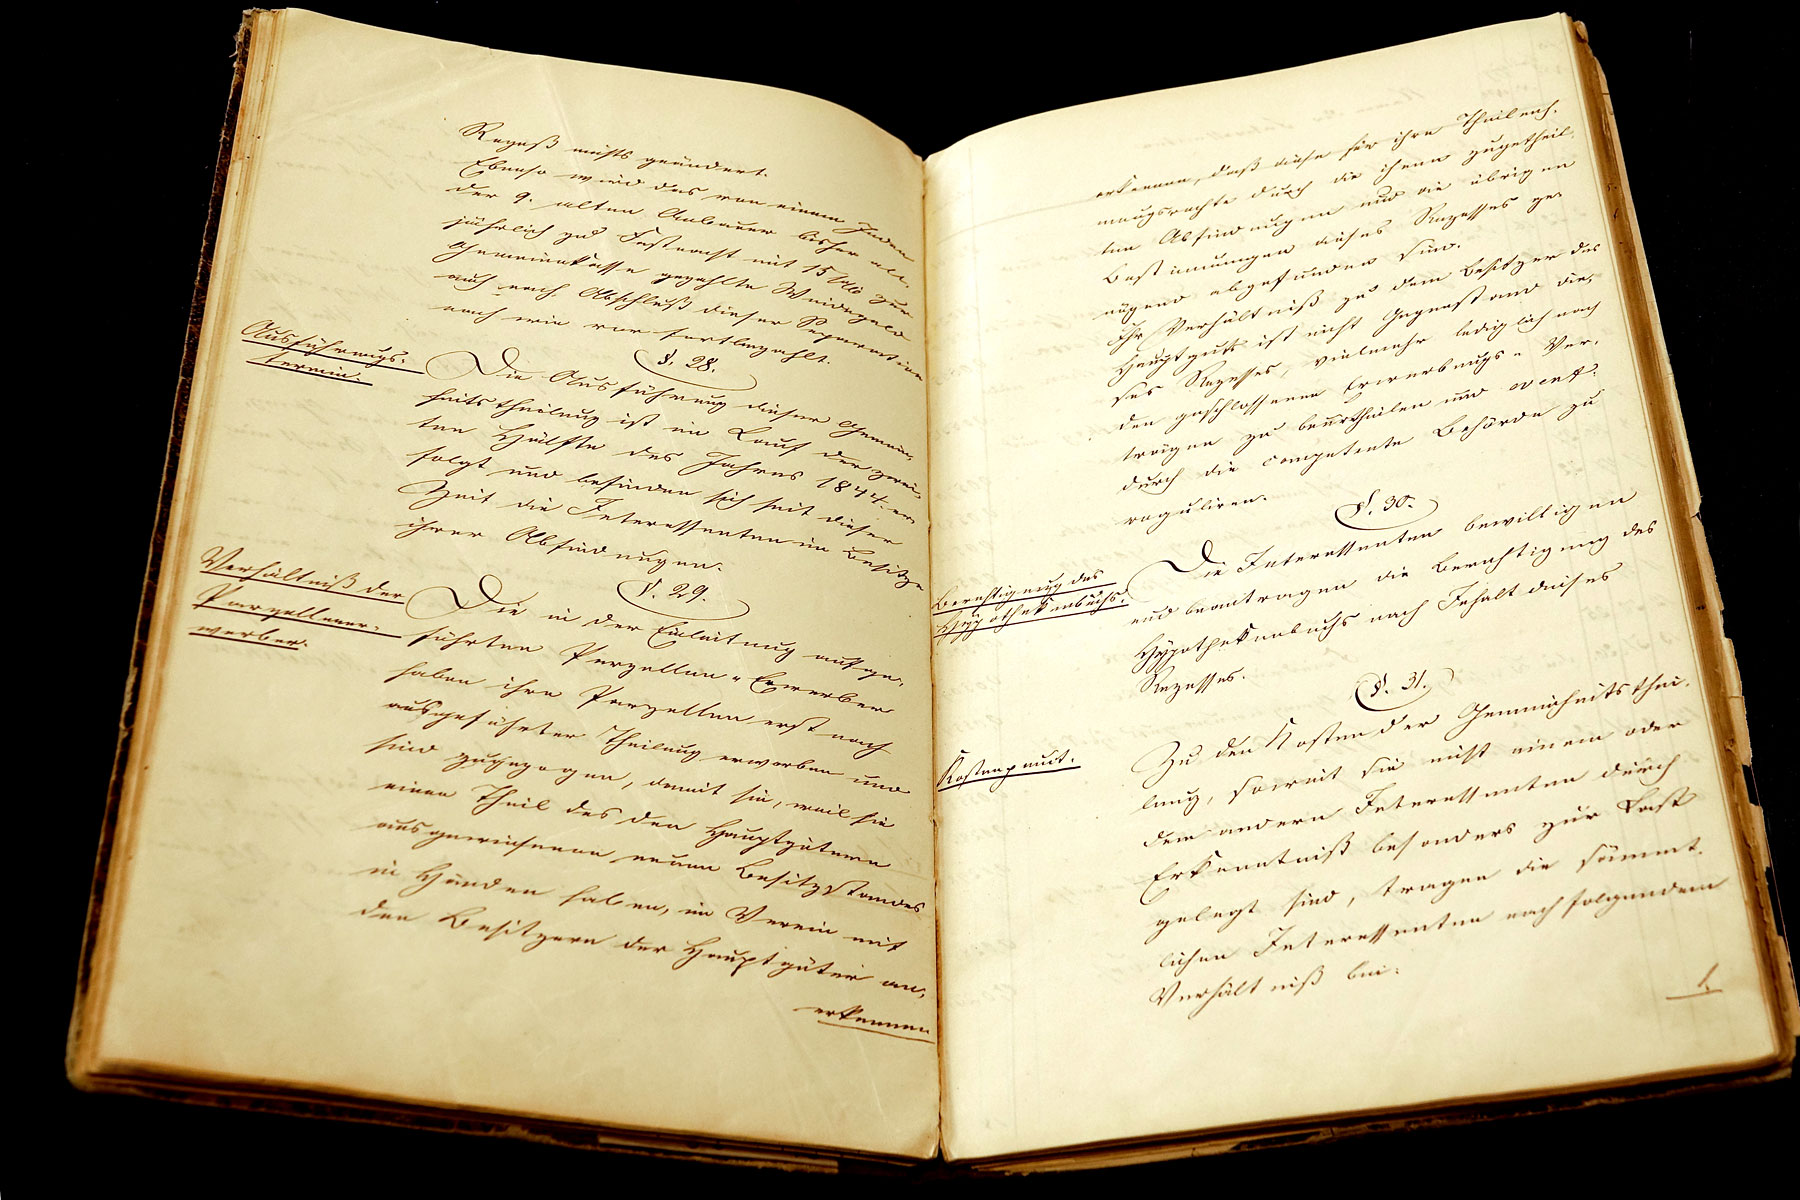 Rezeß nichts geändert.
Ebenso wird das von einem Jeden
der 9. alten Anbauer bisher all-
jährlich zu Fastnacht mit 15 zur
Gemeindekasse gezahlte Weidegeld
auch nach Abschluß dieser Separation
nach wie vor fortbezahlt.
Ausführungs-
termin.
§. 28.
Die Ausführung dieser Gemein-
heitstheilung ist im Laufe der zwei-
ten Hälfte des Jahres 1844. er-
folgt und befinden sich seit dieser
Zeit die Interessenten im Besitze
ihrer Abfindungen.
Verhältniß der
Parzellener-
werber.
§. 29.
Die in der Einleitung aufge-
führten Parzellen-Erwerber
haben ihre Parzellen erst nach
ausgeführter Theilung erworben und
sind zugezogen, damit sie, weil sie
einen Theil des den Hauptgütern
ausgewiesenen neuen Besitzstandes
in Händen haben, im Verein mit
den Besitzern der Hauptgüter an-
erkennen
erkennen, daß diese für ihre Theilneh-
mungsrechte durch die ihnen zugetheil-
ten Abfindungen und die übrigen
Bestimmungen dieses Rezesses ge-
nügend abgefunden sind.
Ihr Verhältniß zu dem Besitzer des
Hauptguts ist nicht Gegenstand die-
ses Rezesses, vielmehr lediglich nach
den geschlossenen Erwerbungs-Ver-
trägen zu beurtheilen und event.
durch die competente Behörde zu
reguliren.
§. 30.
Berichtigung des
Hypothekenbuchs.
Die Interessenten bewilligen
und beantragen die Berichtigung des
Hypothekenbuchs nach Inhalt dieses
Rezesses.
§. 31.
Kostenpunct.
Zu den Kosten der Gemeinheitsthei-
lung, soweit sie nicht einem oder
dem andern Interessenten durch
Erkenntniß besonders zur Last
gelegt sind, tragen die sämmt-
lichen Interessenten nach folgendem
Verhältniß bei:
1.